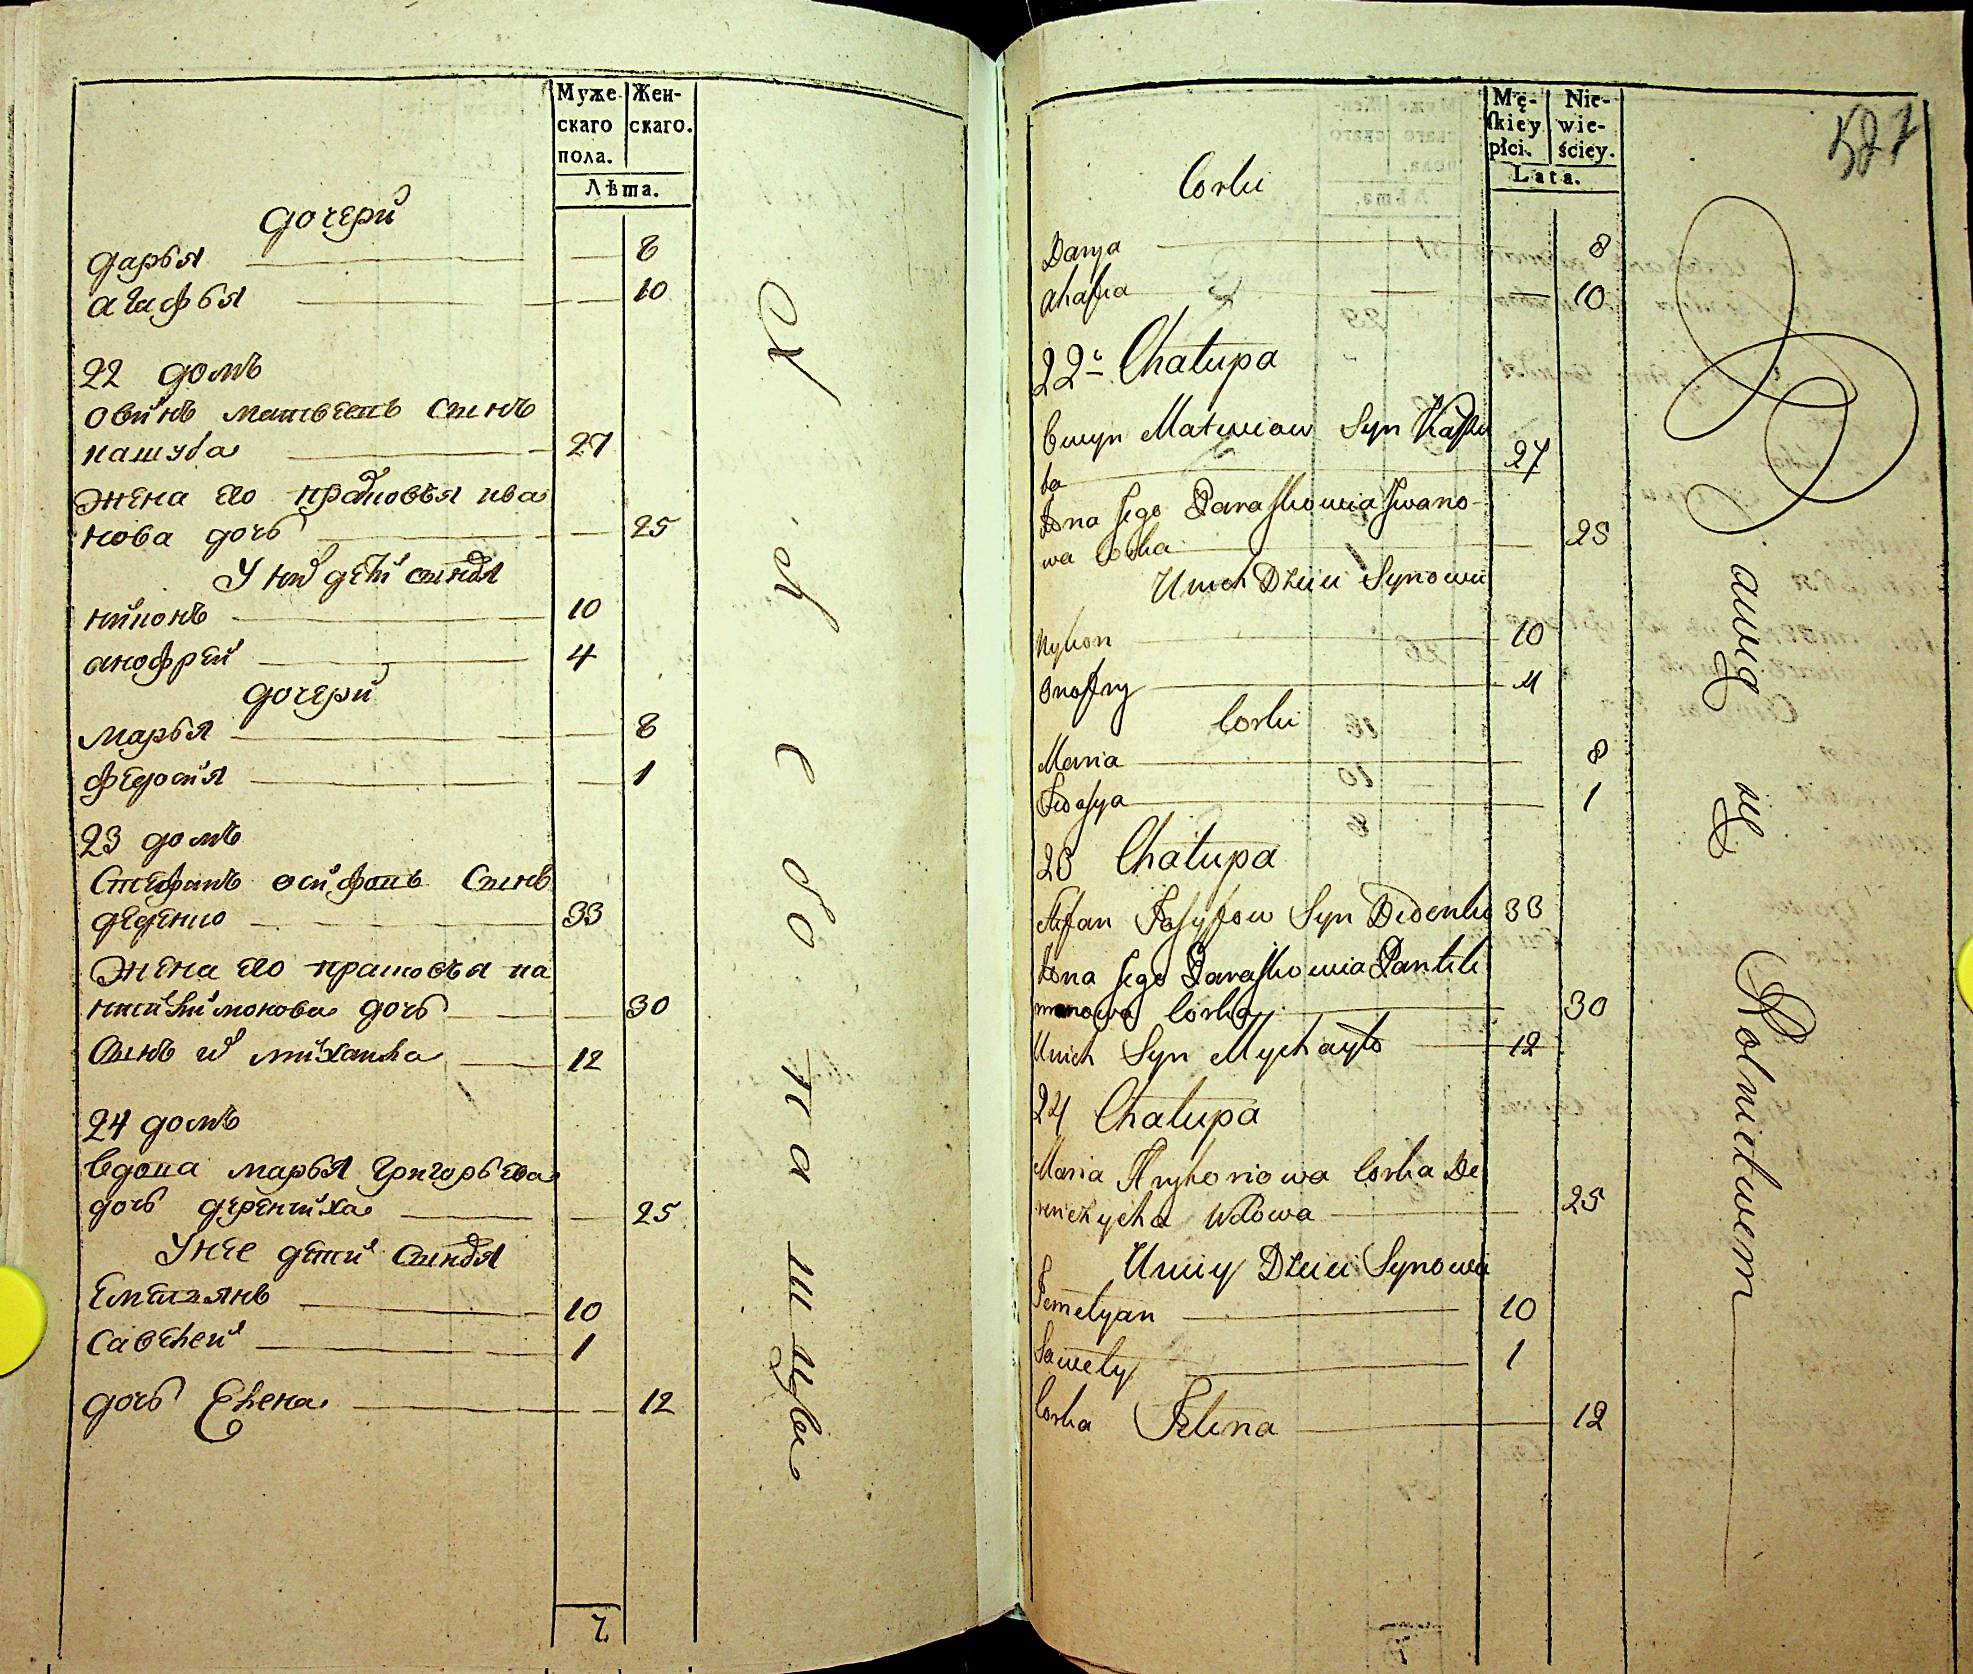 Муже-
скаго
пола.
Жен-
скаго.
Лѣта.
дочери
дарья 8
агафья 10
22 домъ
овинъ матвеевъ сынъ
кашуба 27
жена его прасковья ива
нова дочь 25
У них дети сыновья
никонъ 10
анофрей 4
дочери
марья 8
федосия 1
23 домъ
Стефанъ осифовъ Сынъ
деденко 33
жена его прасковья па
нтилимонова дочь 30
Сынъ их михаила 12
24 домъ
вдова марья григорьева
дочь
25
У нее дети сыновья
Емельянъ 10
Савелей 1
дочь Елена 12
7
Mę-
ſkiey
płci.
Nie-
wie-
ściey.
Lata.
587
Corki
Darya 8
Ahafia 10
22a Chałupa
Matwiow Syn Kaszu
ba 27
Żona Jego Paraskowia Iwano-
wa Corka 25
U nich Dzieci Synowie
Nykon 10
Onofry 4
Corki
Maria 8
Fedosya 1
23 Chałupa
Stefan Josyfow Syn Dedenko 33
Żona Jego Paraskowia Pantele
monowa Corka 30
U nich Syn Mychayło 12
24 Chałupa
Maria Hryhoriowa Corka De
Wdowa 25
U niey Dzieci Synowie
Jemelyan 10
Sawely 1
Corka Jelena 12
Rolnictwem